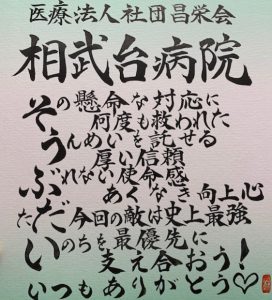 医療法人社団昌栄会
相武台病院
その懸命な対応に
何度も救われた
うんめいを託せる
厚い信頼
ぶれない使命感
あくなき向上心
ただ今回の敵は史上最強
いのちを最優先に
支え合おう!
いつもありがとう♡